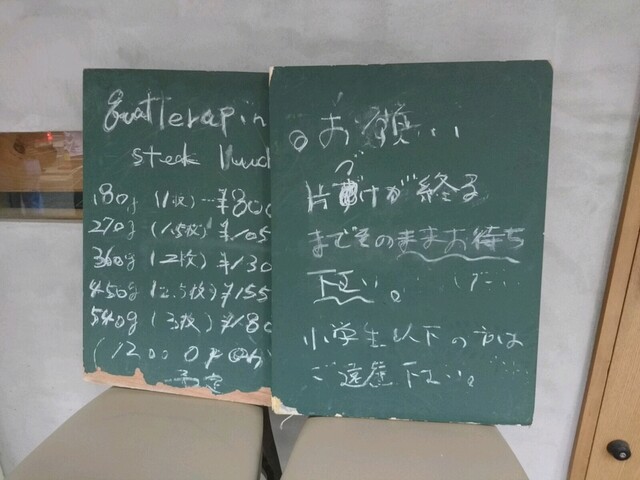 steak lunch
180g (1枚) … ¥800
270g (1.5枚) ¥105
360g (2枚) ¥130
450g (2.5枚) ¥155
540g (3枚) ¥180
予定
○お願い
片づけが終る
までそのままお待ち
下さい。
小学生以下の方は
ご遠慮下さい。